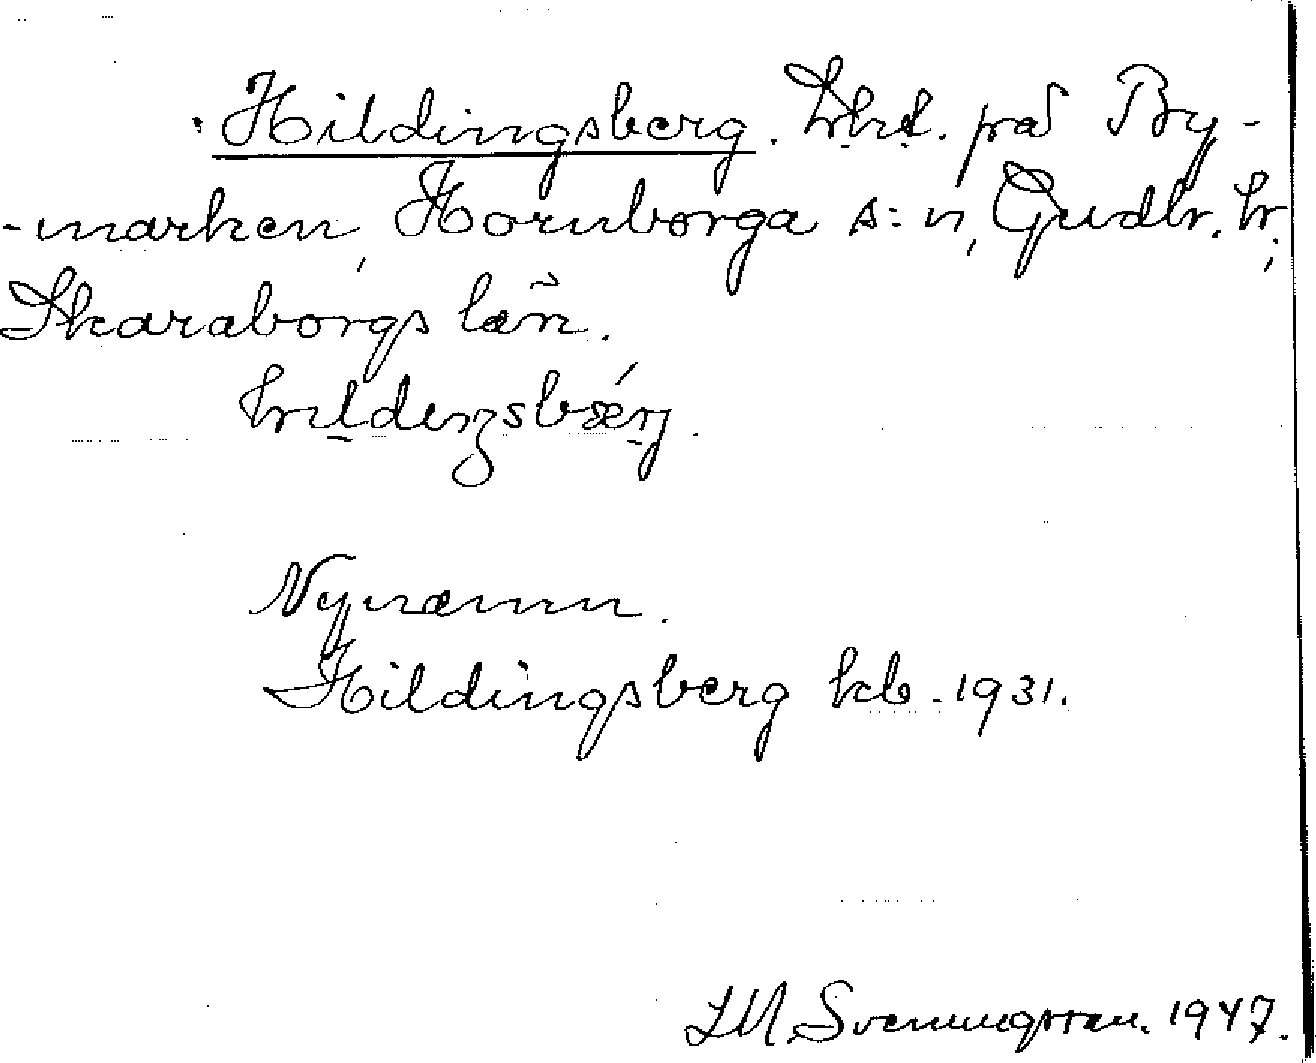 Hildingsberg. Lht. på By-
-marken, Hornborga s:n, Gudh. hr,
Skaraborgs län.
hildeŋsbǽrj.
Nynamn.
Hildingsberg kb 1931.
Svenungsson. 1947.